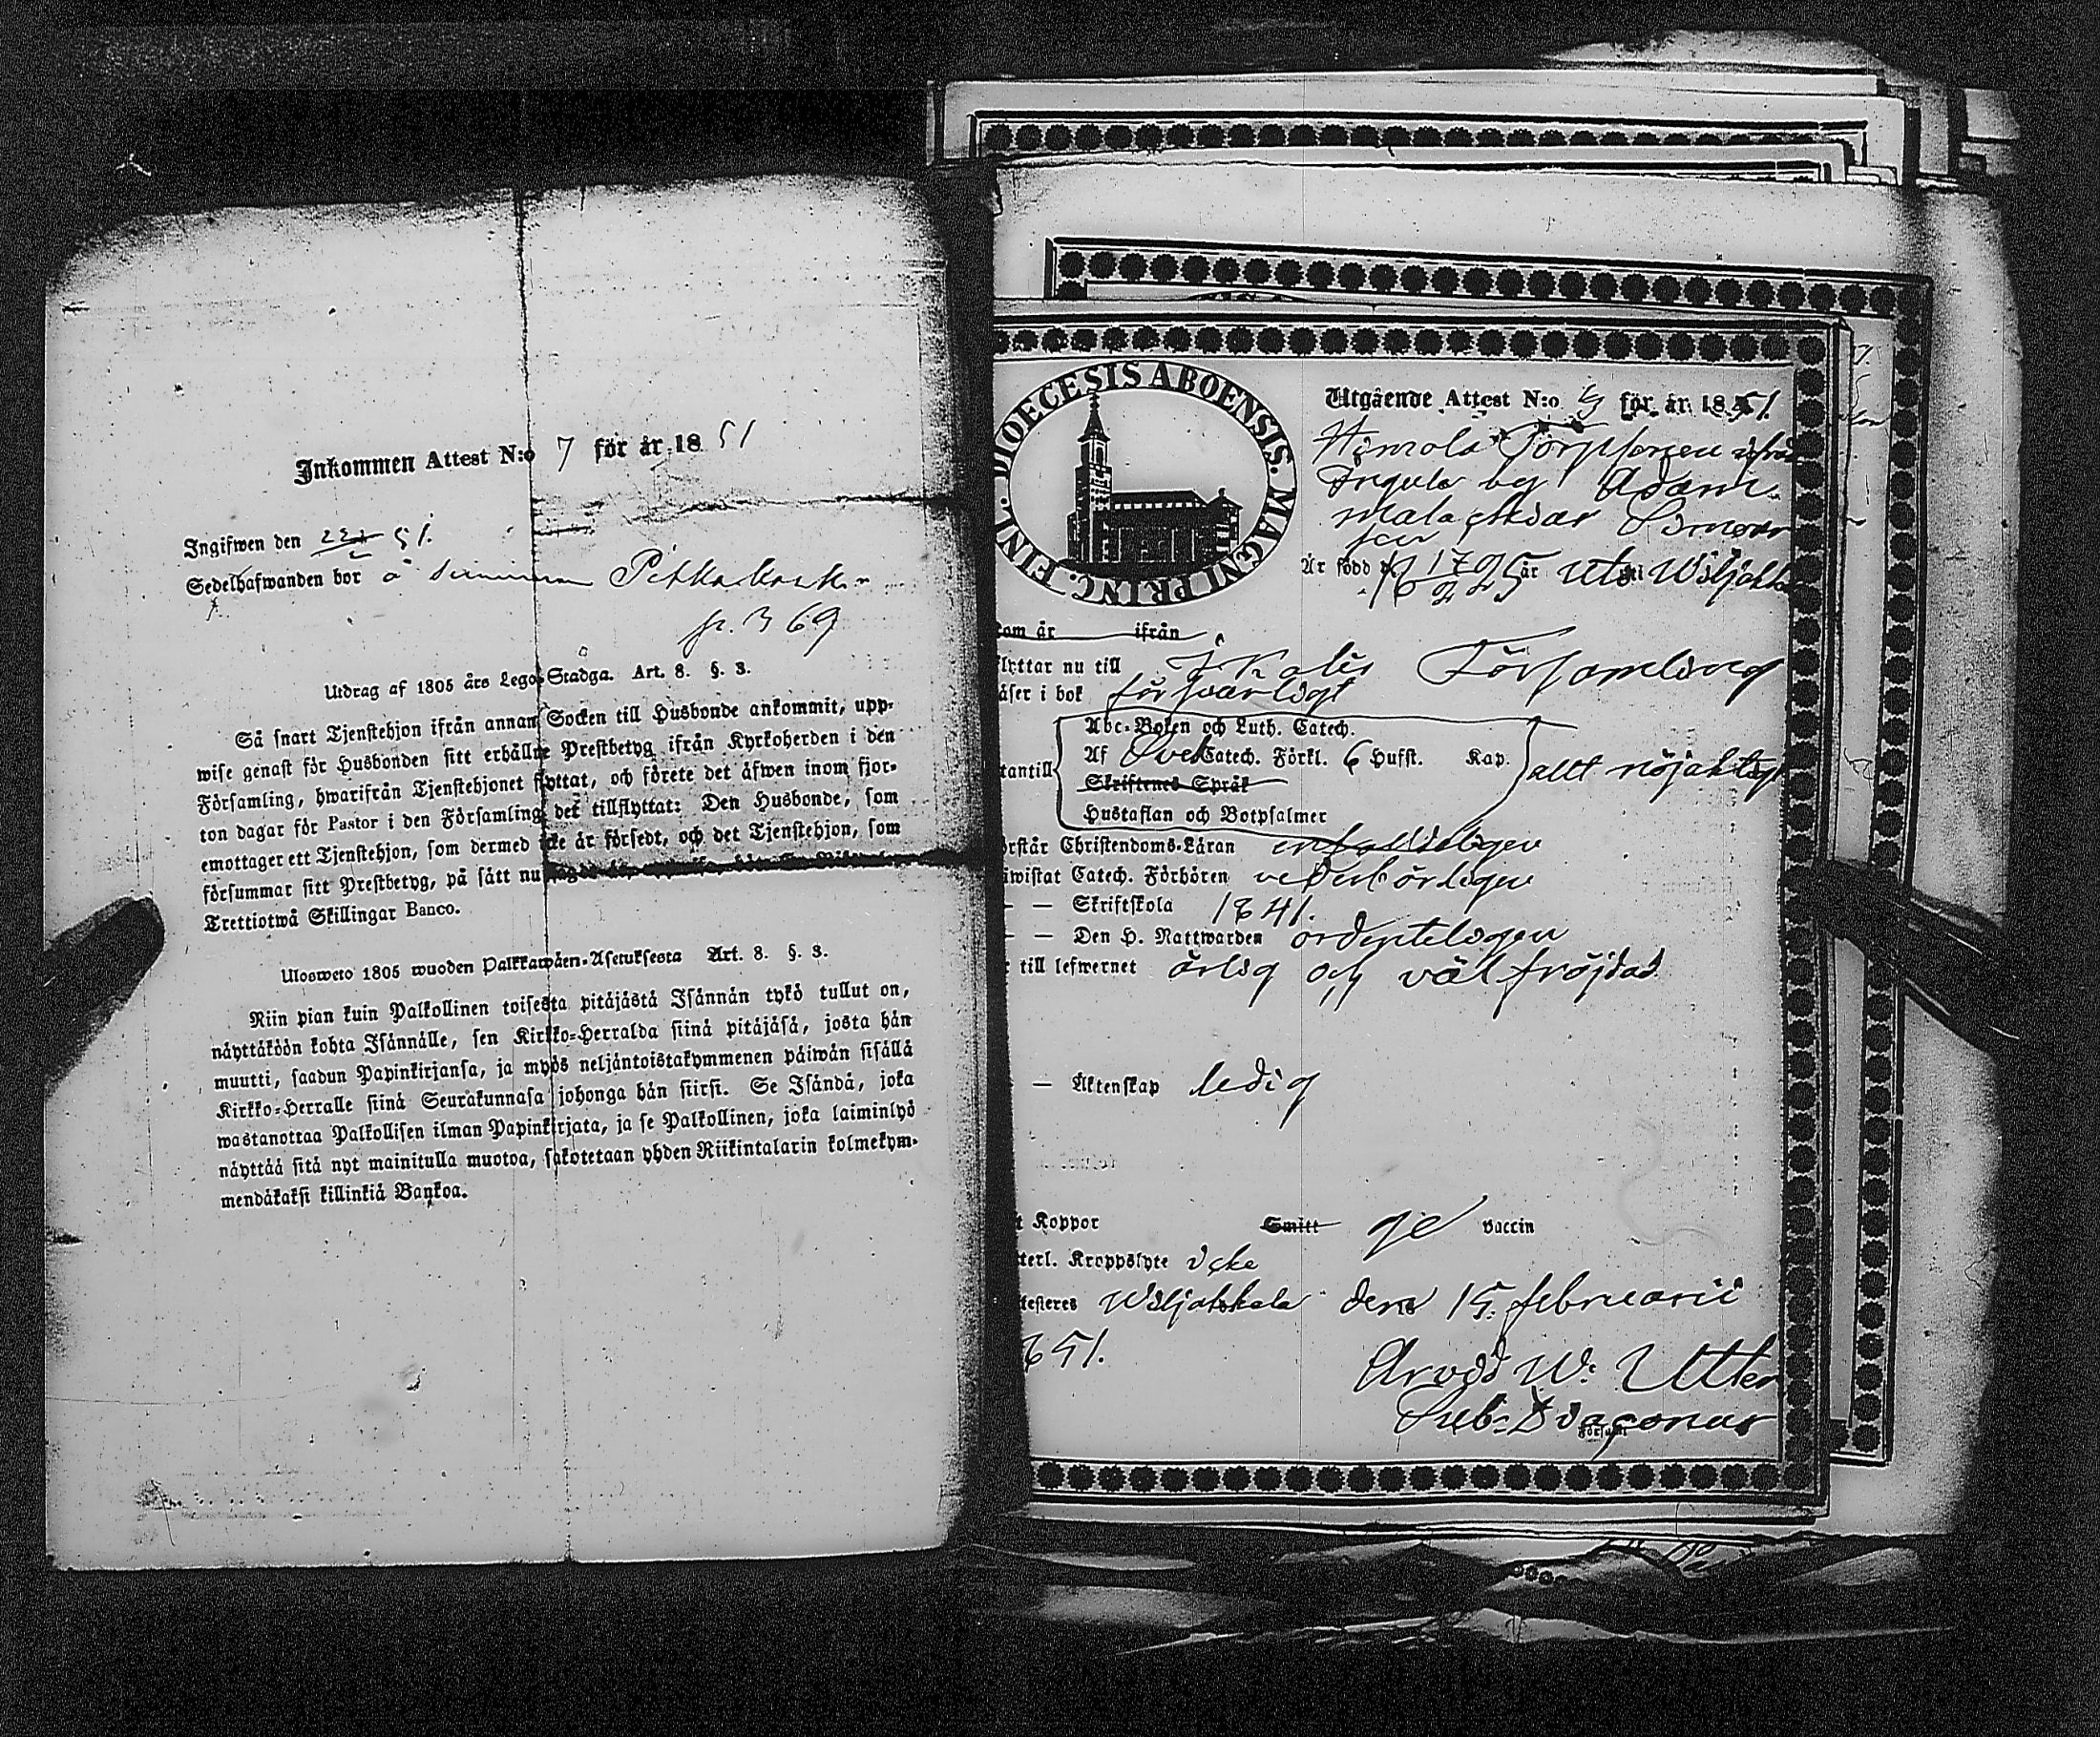 Inkommen Attest N:o 7 för år 18 51
Ingifwen den 51.
Sedelhafwanden bor å
p. 369
Utdrag af 1805 års Lego-Stadga. Art. 8. §. 3.
Så snart Tjenstehjon ifrån annan Socken till Husbonde ankommit, upp-
wise genast för Husbonden sitt erhållne Prestbetyg ifrån Kyrkoherden i den
Församling, hwarifrån Tjenstehjonet flyttat, och förete det åfwen inom fjor-
ton dagar för Pastor i den Församling det tillflyttat: Den Husbonde, som
emottager ett Tjenstehjon, som dermed icke år försedt, och det Tjenstehjon, som
försummar sitt Prestbetyg, på sått nu
Trettiotwå Skillingar Banco.
Ulosweto 1805 wuoden Palkkawåen-Asetuksesta Art. 8. §. 3.
Niin pian kuin Palkollinen toisesta pitåjåstå Isånnån tykö tullut on,
nåyttåköön kohta Isånnålle, sen Kirkko-Herralda siinå pitåjåså, josta hån
muutti, saadun Papinkirjansa, ja myös neljåntoistakymmenen påiwån sisållå
Kirkko-Herralle siinå Seurakunnasa johonga hån siirsi. Se Isåndå, joka
wastanottaa Palkollisen ilman Papinkirjata, ja se Palkollinen, joka laiminlyö
nåyttåå sitå nyt mainitulla muotoa, sakotetaan yhden Riikintalarin kolmekym-
mendåkaksi killinkiå Bankoa.
DIOECESIS ABOENSIS. MAGNI PRINC. FINL.
Utgående Attest N:o för år 1851.
by Adam
Är född 1795 år uti
om år ifrån
flyttar nu till Församling
låser i bok försvarligt
Abc-Boken och Luth. Catech.
Af Catech. Förkl. 6 Hufst. Kap.
tantill allt nöjaktigt
Skriftenes Språk
Hustaflan och Botpsalmer
örstår Christendoms-Låran enfaldeligen
iwistat Catech. Förhören vederbörligen
— — Skriftskola 1841.
— — Den H. Nattwarden ordenteligen
till lefwernet ärlig och välfrejdad
— Äktenskap ledig
Koppor Smitt ge vaccin
terl. Kroppslyte icke
testeres Wiljakkala den 15. februarii
851.
Arvid W: Utter